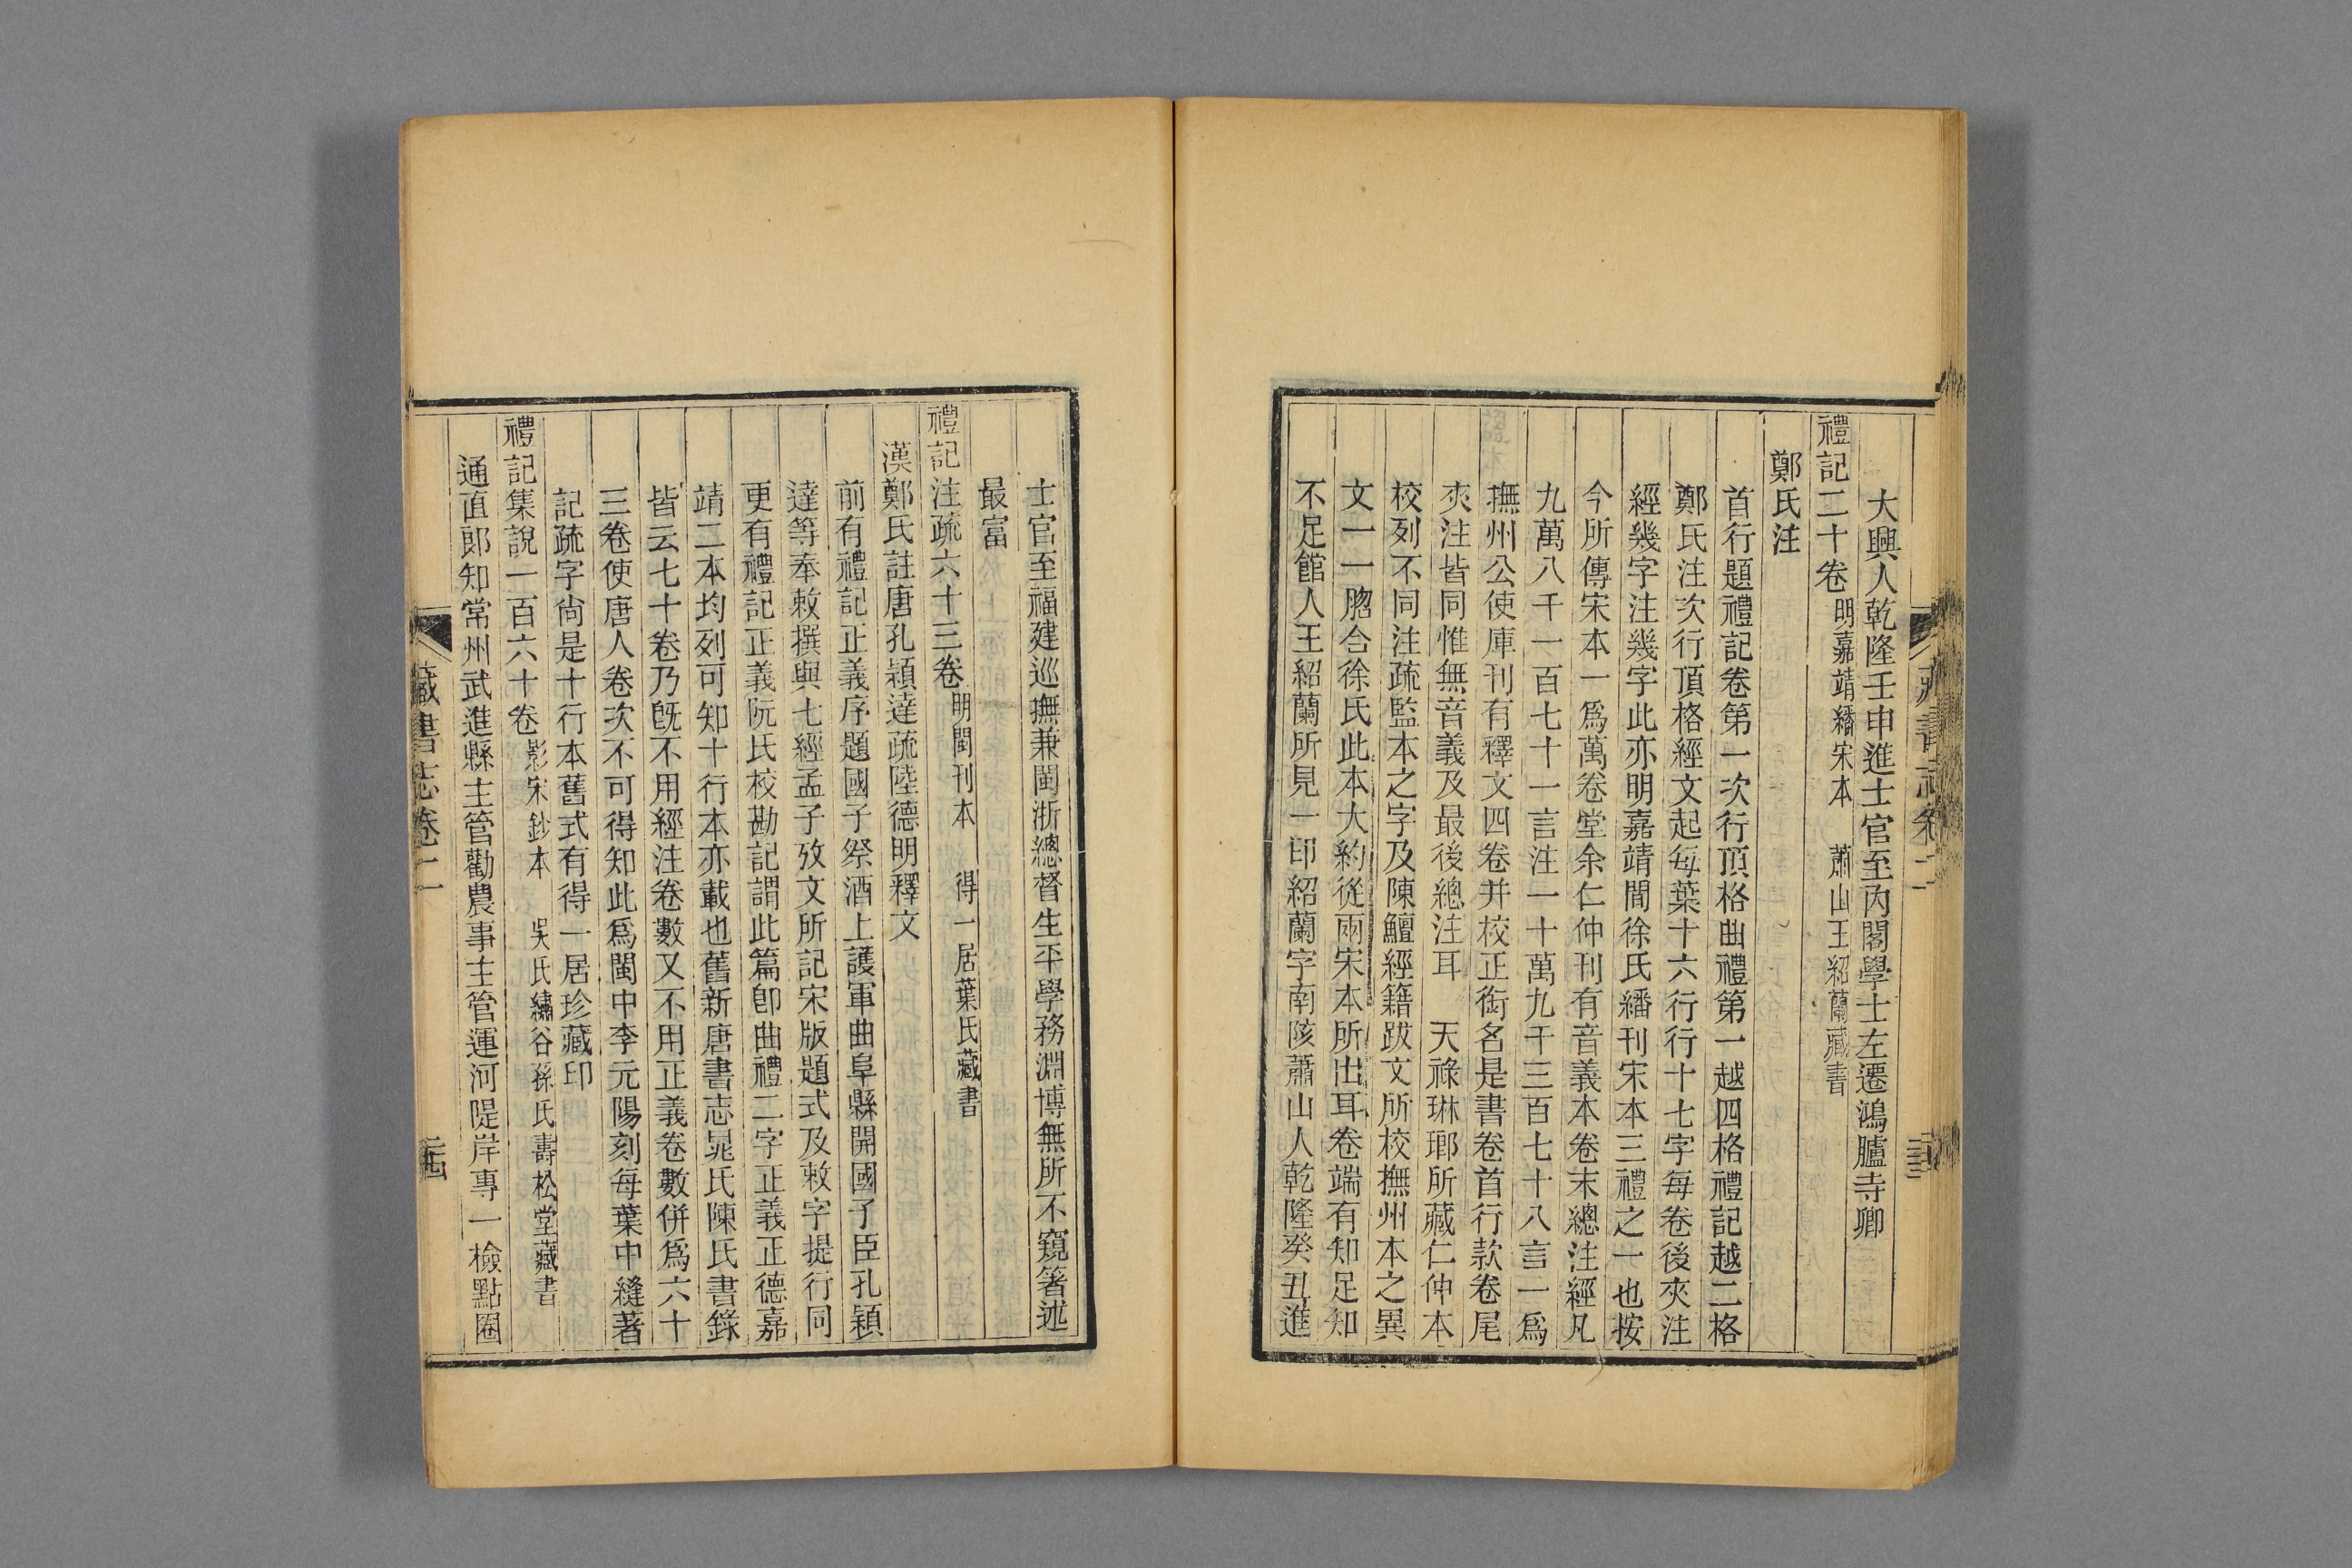 大興人乾隆壬申進士官至內閣學士左遷鴻臚寺卿
禮記二十卷 明嘉靖繙宋本 蕭山王紹蘭藏書
鄭氏注
首行題禮記卷第一次行頂格曲禮第一越四格禮記越二格
鄭氏注次行頂格經文起每葉十六行行十七字每卷後夾注
經幾字注幾字此亦明嘉靖間徐氏繙刊宋本三禮之一也按
今所傳宋本一爲萬卷堂余仁仲刊有音義本卷末總注經凡
九萬八千一百七十一言注一十萬九千三百七十八言一爲
撫州公使庫刊有釋文四卷并校正銜名是書卷首行款卷尾
夾注皆同惟無音義及最後總注耳 天祿琳瑯所藏仁仲本
校列不同注疏監本之字及陳鱣經籍跋文所校撫州本之異
文一一脗合徐氏此本大約從兩宋本所出耳卷端有知足知
不足館人王紹蘭所見一印紹蘭字南陔蕭山人乾隆癸丑進
藏書志卷二
士官至福建巡撫兼閩浙總督生平學務淵博無所不窺箸述
最富
禮記注疏六十三卷 明閩刊本 得一居葉氏藏書
漢鄭氏註唐孔穎達疏陸德明釋文
前有禮記正義序題國子祭酒上護軍曲阜縣開國子臣孔穎
達等奉敕撰與七經孟子攷文所記宋版題式及敕字提行同
更有禮記正義阮氏校勘記謂此篇卽曲禮二字正義正德嘉
靖二本均列可知十行本亦載也舊新唐書志晁氏陳氏書錄
皆云七十卷乃旣不用經注卷數又不用正義卷數併爲六十
三卷使唐人卷次不可得知此爲閩中李元陽刻每葉中縫著
記疏字尙是十行本舊式有得一居珍藏印
禮記集說一百六十卷 影宋鈔本 吳氏繡谷孫氏壽松堂藏書
通直郎知常州武進縣主管勸農事主管運河隄岸專一檢點圈
藏書志卷二